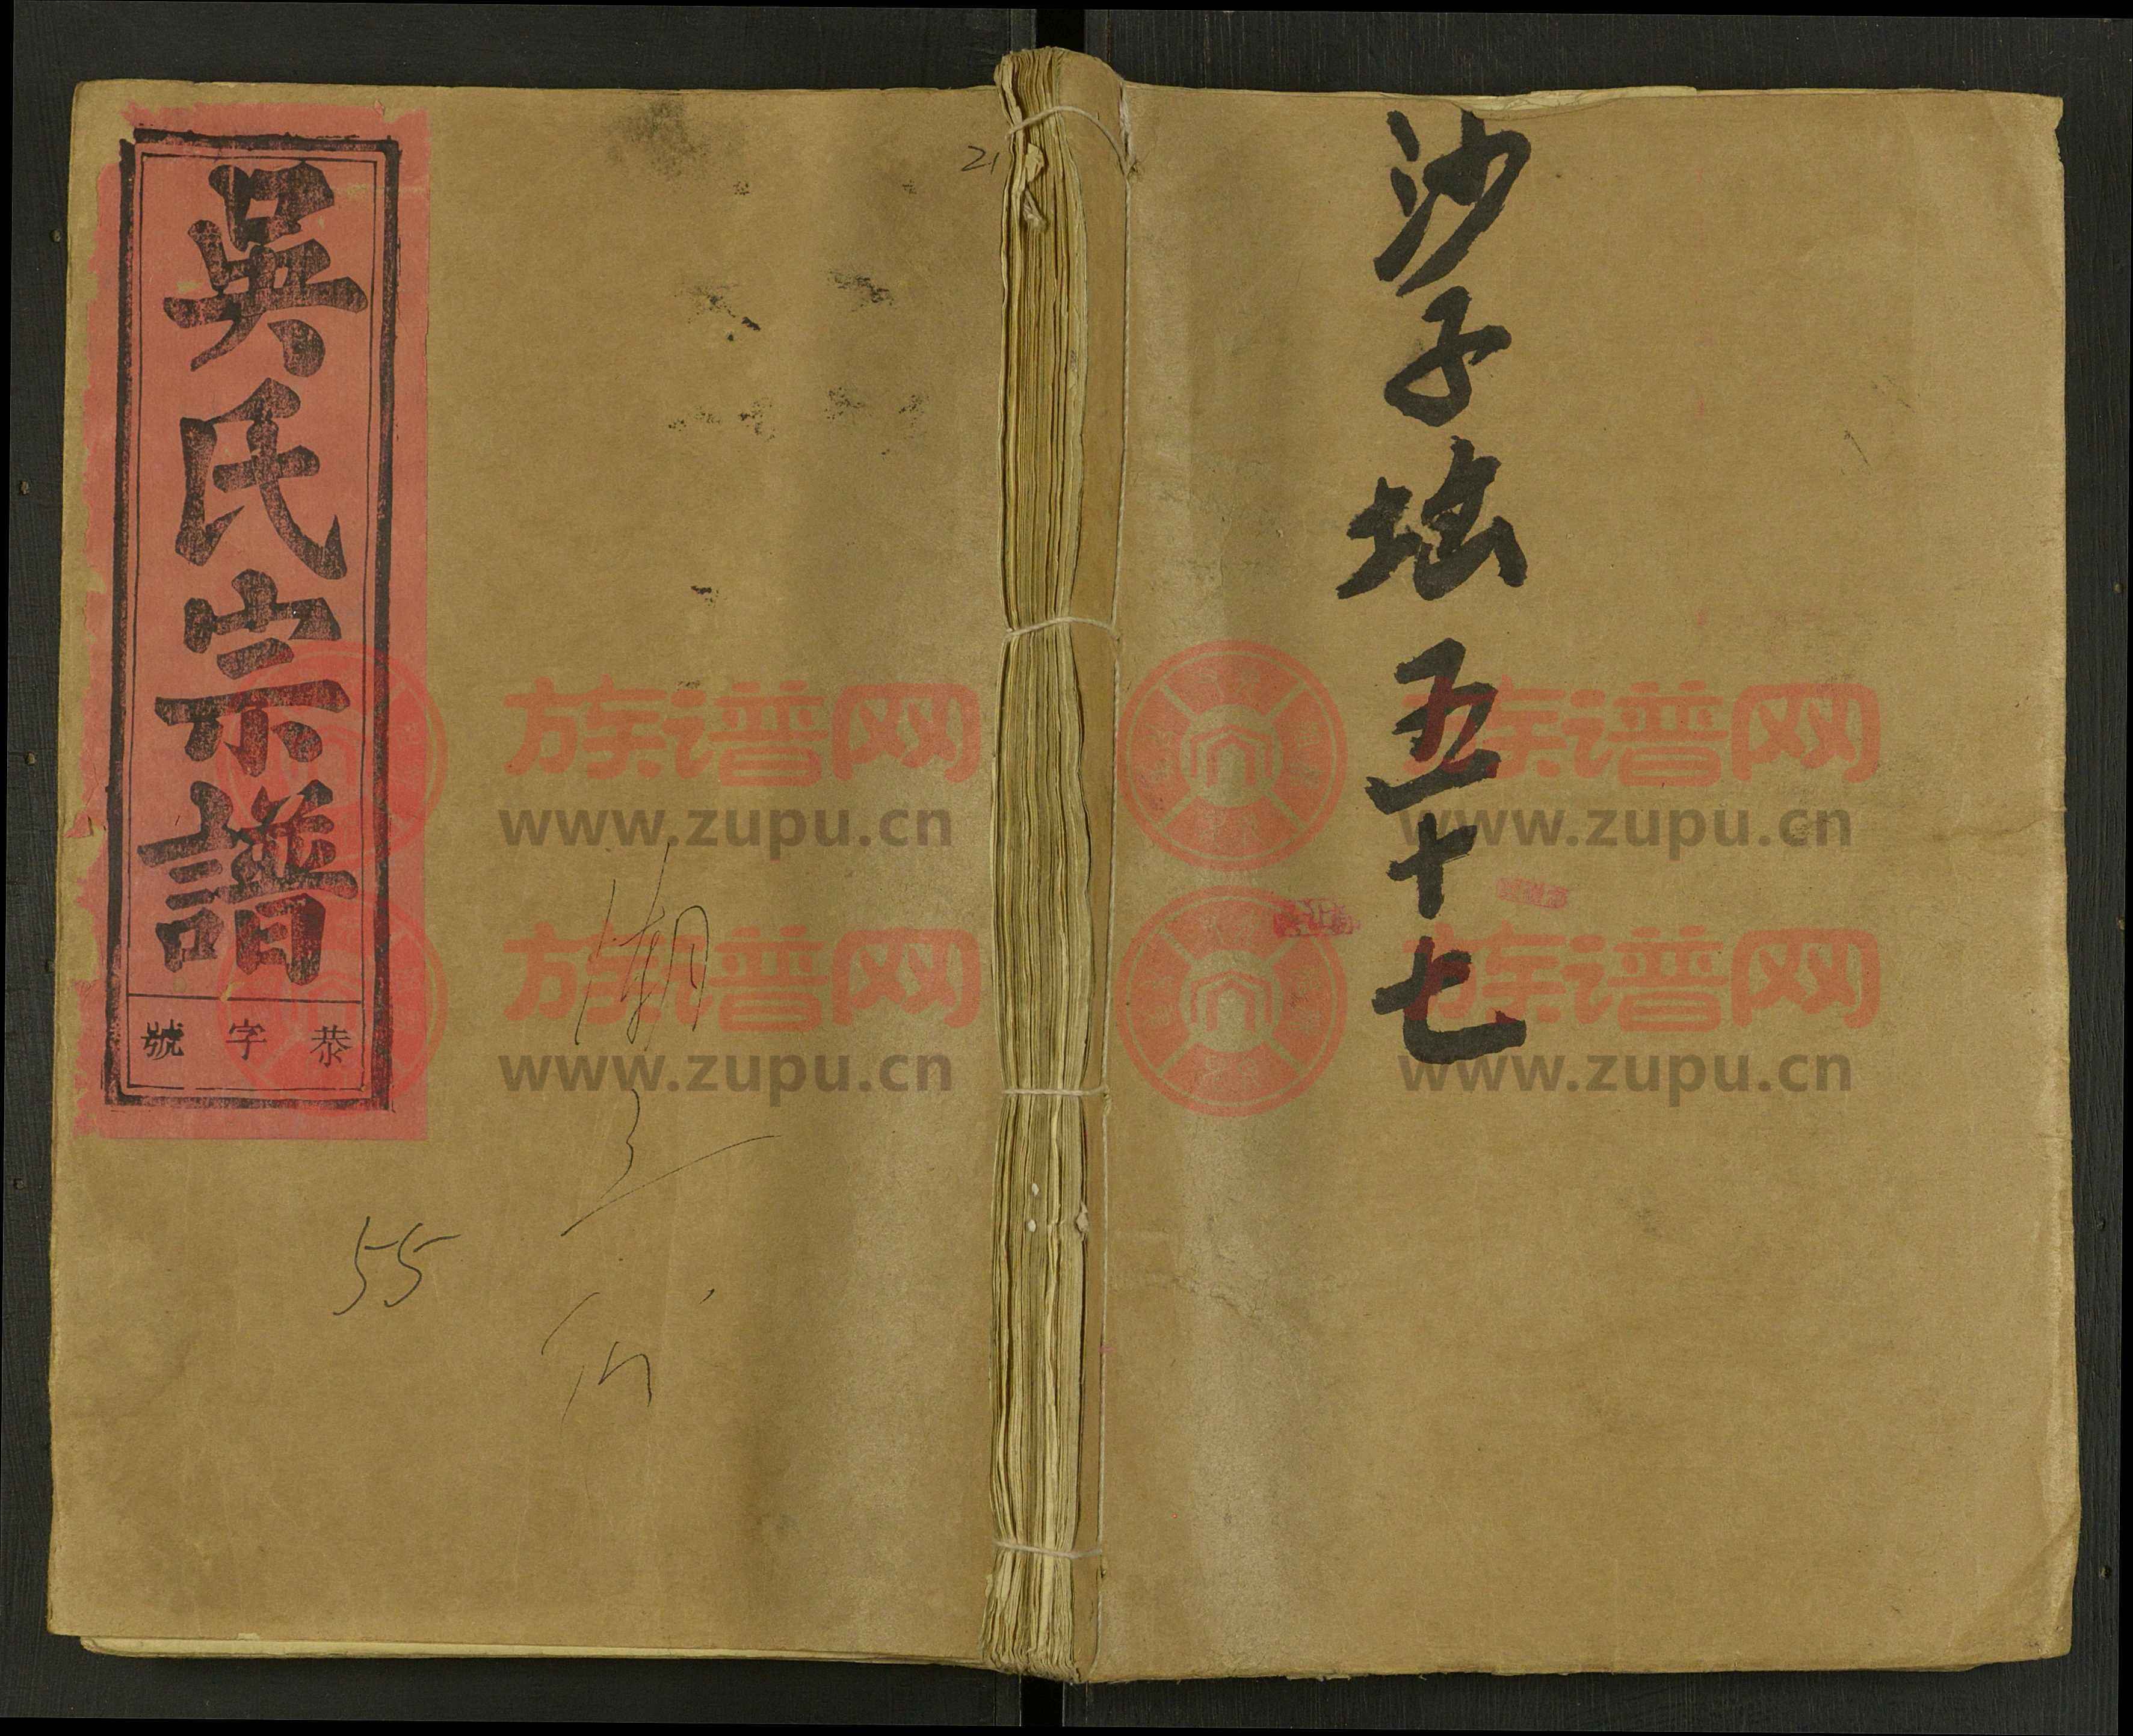 吳氏宗譜
恭字號
21
55
湖
沙子坳五十七
族谱网
www.zupu.cn
族谱网
www.zupu.cn
族谱网
www.zupu.cn
族谱网
www.zupu.cn